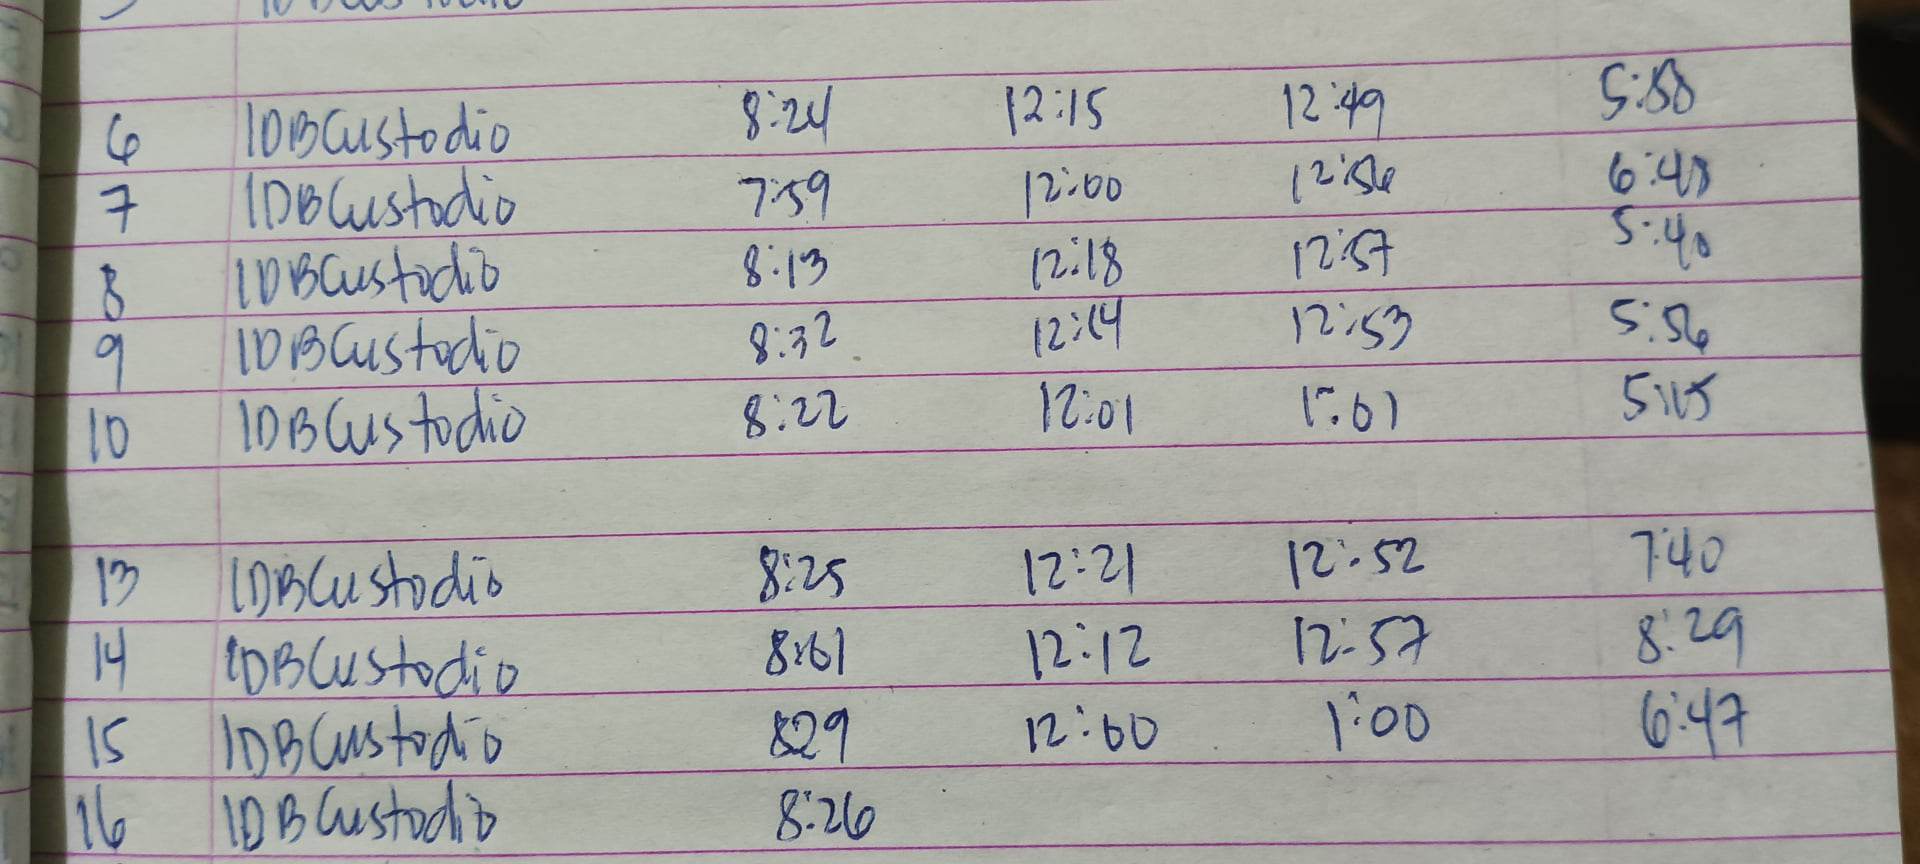 6 IDBCustodio 8:24 12:15 12:49 5:58
7 IDBCustodio 7:59 12:00 12:56 6:48
8 IDBCustodio 8:13 12:18 12:57 5:40
9 IDBCustodio 8:32 12:14 12:53 5:56
10 IDBCustodio 8:22 12:01 1:01 5:15
13 IDBCustodio 8:25 12:21 12:52 7:40
14 IDBCustodio 8:01 12:12 12:57 8:29
15 IDBCustodio 829 12:00 1:00 6:47
16 IDBCustodio 8:26